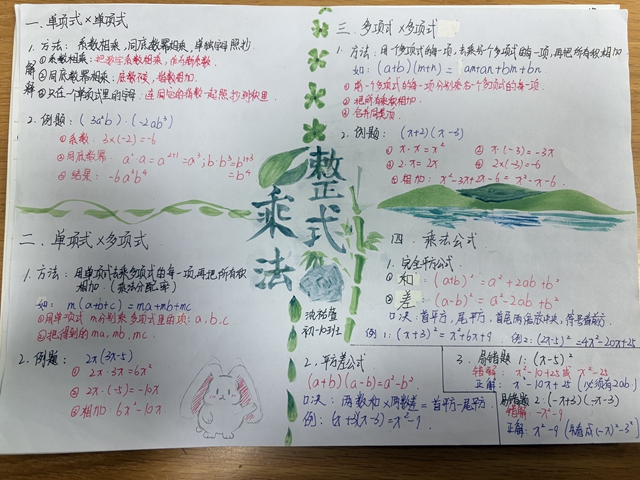 一、单项式×单项式
1. 方法：系数相乘，同底数幂相乘，单独字母照抄
解释
① 系数相乘：把数字系数相乘，
② 同底数幂相乘：底数不变，指数相加.
③ 只在一个单项式里的字母：连同它的指数一起照抄到积里
2. 例题：(3a²b)·(-2ab³)
① 系数：3×(-2)=-6
② 同底数幂 a²·a=a²⁺¹=a³；b·b³=b¹⁺³
=b⁴
③ 结果：-6a³b⁴
二、单项式×多项式
1. 方法：用单项式去乘多项式的每一项，再把所有积
相加.（乘法分配率）
如：m(a+b+c)=ma+mb+mc
① 用单项式 m分别乘多项式里的项：a,b,c
② 把得到的ma,mb,mc.
2. 例题：2x(3x-5)
① 2x·3x=6x²
② 2x·(-5)=-10x
③ 相加 6x²-10x
整式
乘法
三、多项式×多项式
1. 方法：用一个多项式的每一项，去乘另一个多项式的每一项，再把所有积相加
如：(a+b)(m+n)=am+an+bm+bn
① 用一个多项式的每一项分别乘另一个多项式的每一项.
② 把所有乘积相加.
③ 合并同类项
2. 例题：(x+2)(x-3)
① x·x=x² ② x·(-3)=-3x
③ 2·x=2x ④ 2×(-3)=-6
⑤ 相加：x²-3x+2x-6=x²-x-6.
四、乘法公式
1. 完全平方公式
① 和：(a+b)²=a²+2ab+b²
② 差：(a-b)²=a²-2ab+b²
口决：首平方，尾平方，首尾两倍放中央，符号看前方.
例1：(x+3)²=x²+6x+9 例2：(2x-5)²=4x²-20x+25
2. 平方差公式
(a+b)(a-b)=a²-b².
口决：两数和×两数差=首平方-尾平方.
3. 易错题1：(x-5)²
错解：x²-10+25或x²-25
正解：x²-10x+25（必须有2ab）
易错题2：(-x+3)(-x-3)
错解 -x²-9
正解：x²-9